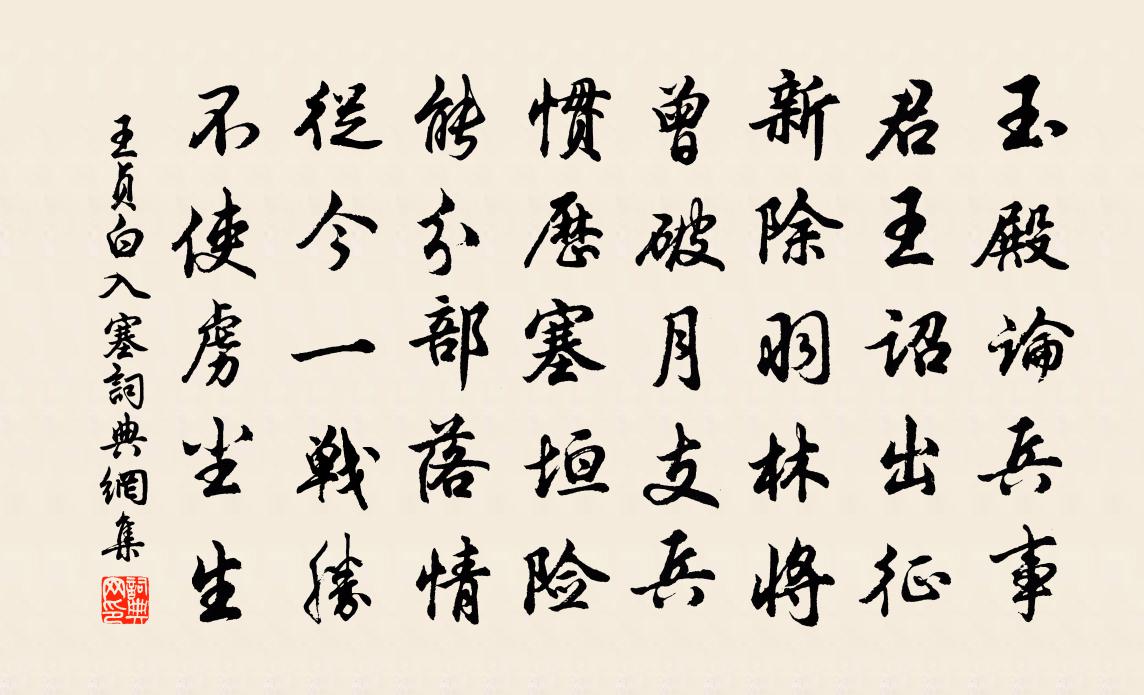 玉殿論兵事
君王詔出征
新除羽林將
曾破月支兵
慣歷塞垣險
能分部落情
從今一戰勝
不使虜尘生
王貞白入塞詞典網集
詞典网印